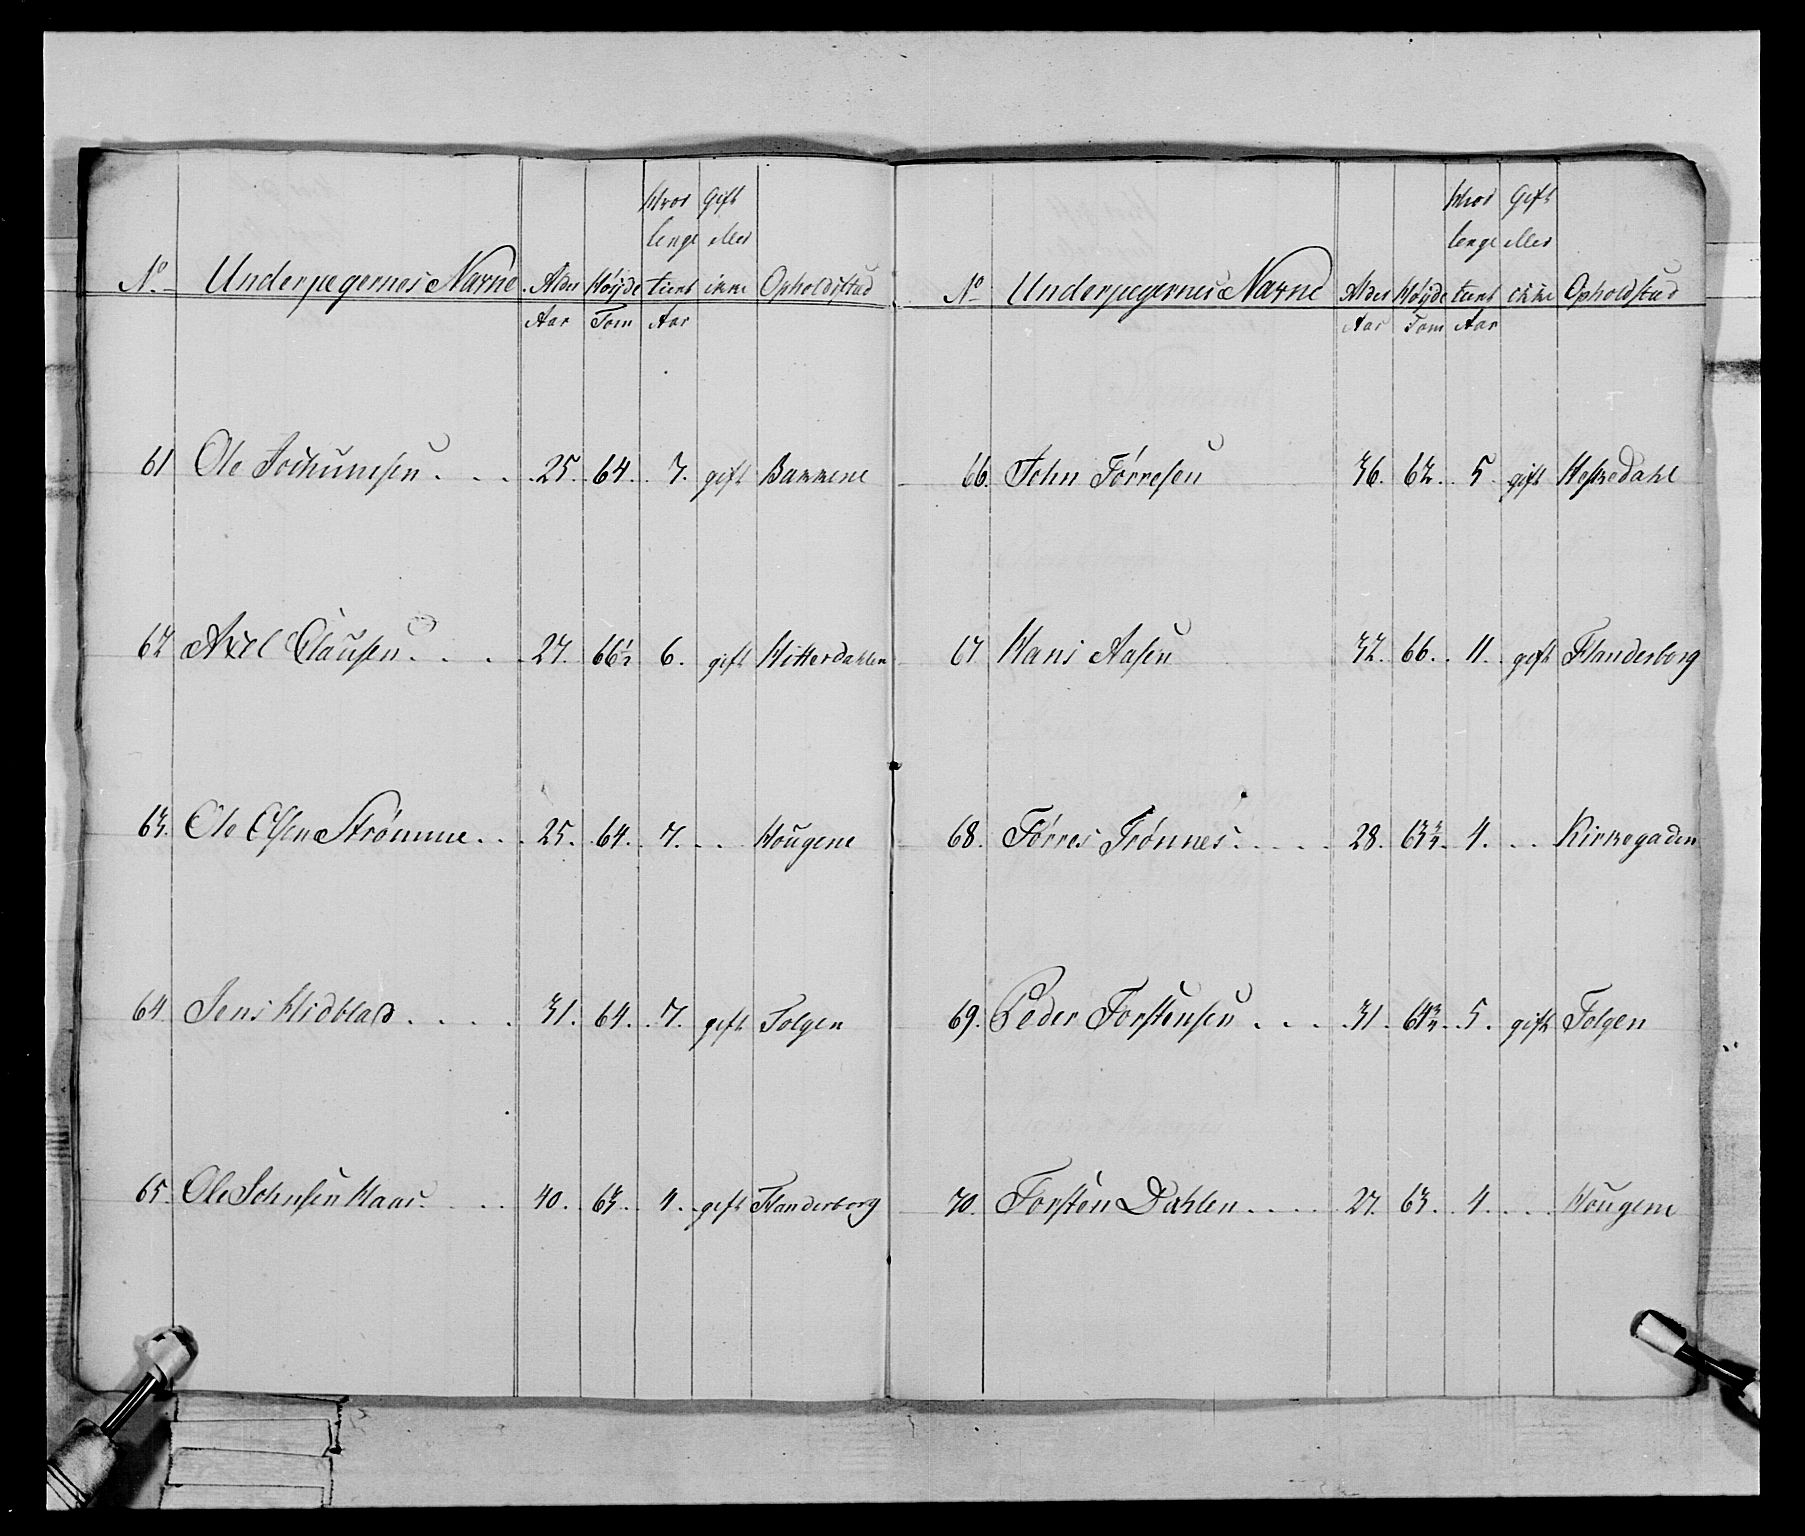 Hvor Gift
lenge eller
No Underjegernes Navne Alder Høyde tient ikke Opholdstad
Aar Tom Aar
61 Ole Jochumsen 25. 64. 7. gift Bakkene
62 Axel Clausen 27. 66½ 6. gift Hitterdahlen
63. Ole Olsen Strømme 25. 64. 7. Hougene
64 Jens Hidblad 31. 64. 7. gift Tolgen
65. Ole Johnsen Haar 40. 63. 4. gift Flanderborg
Hvor Gift
lenge eller
No Underjegernes Navne Alder Høyde tient ikke Opholdstad
Aar Tom Aar
66. John Tørresen 36. 62. 5. gift Heskedahl
67 Hans Aasen 32. 66. 11. gift Flanderborg
68. Tørres Trønnes 28. 63½. 4. Kirkegaden
69. Peder Torstensen 31. 61½. 5. gift Tolgen
70. Torsten Dahlen 27. 63. 4. Hougene